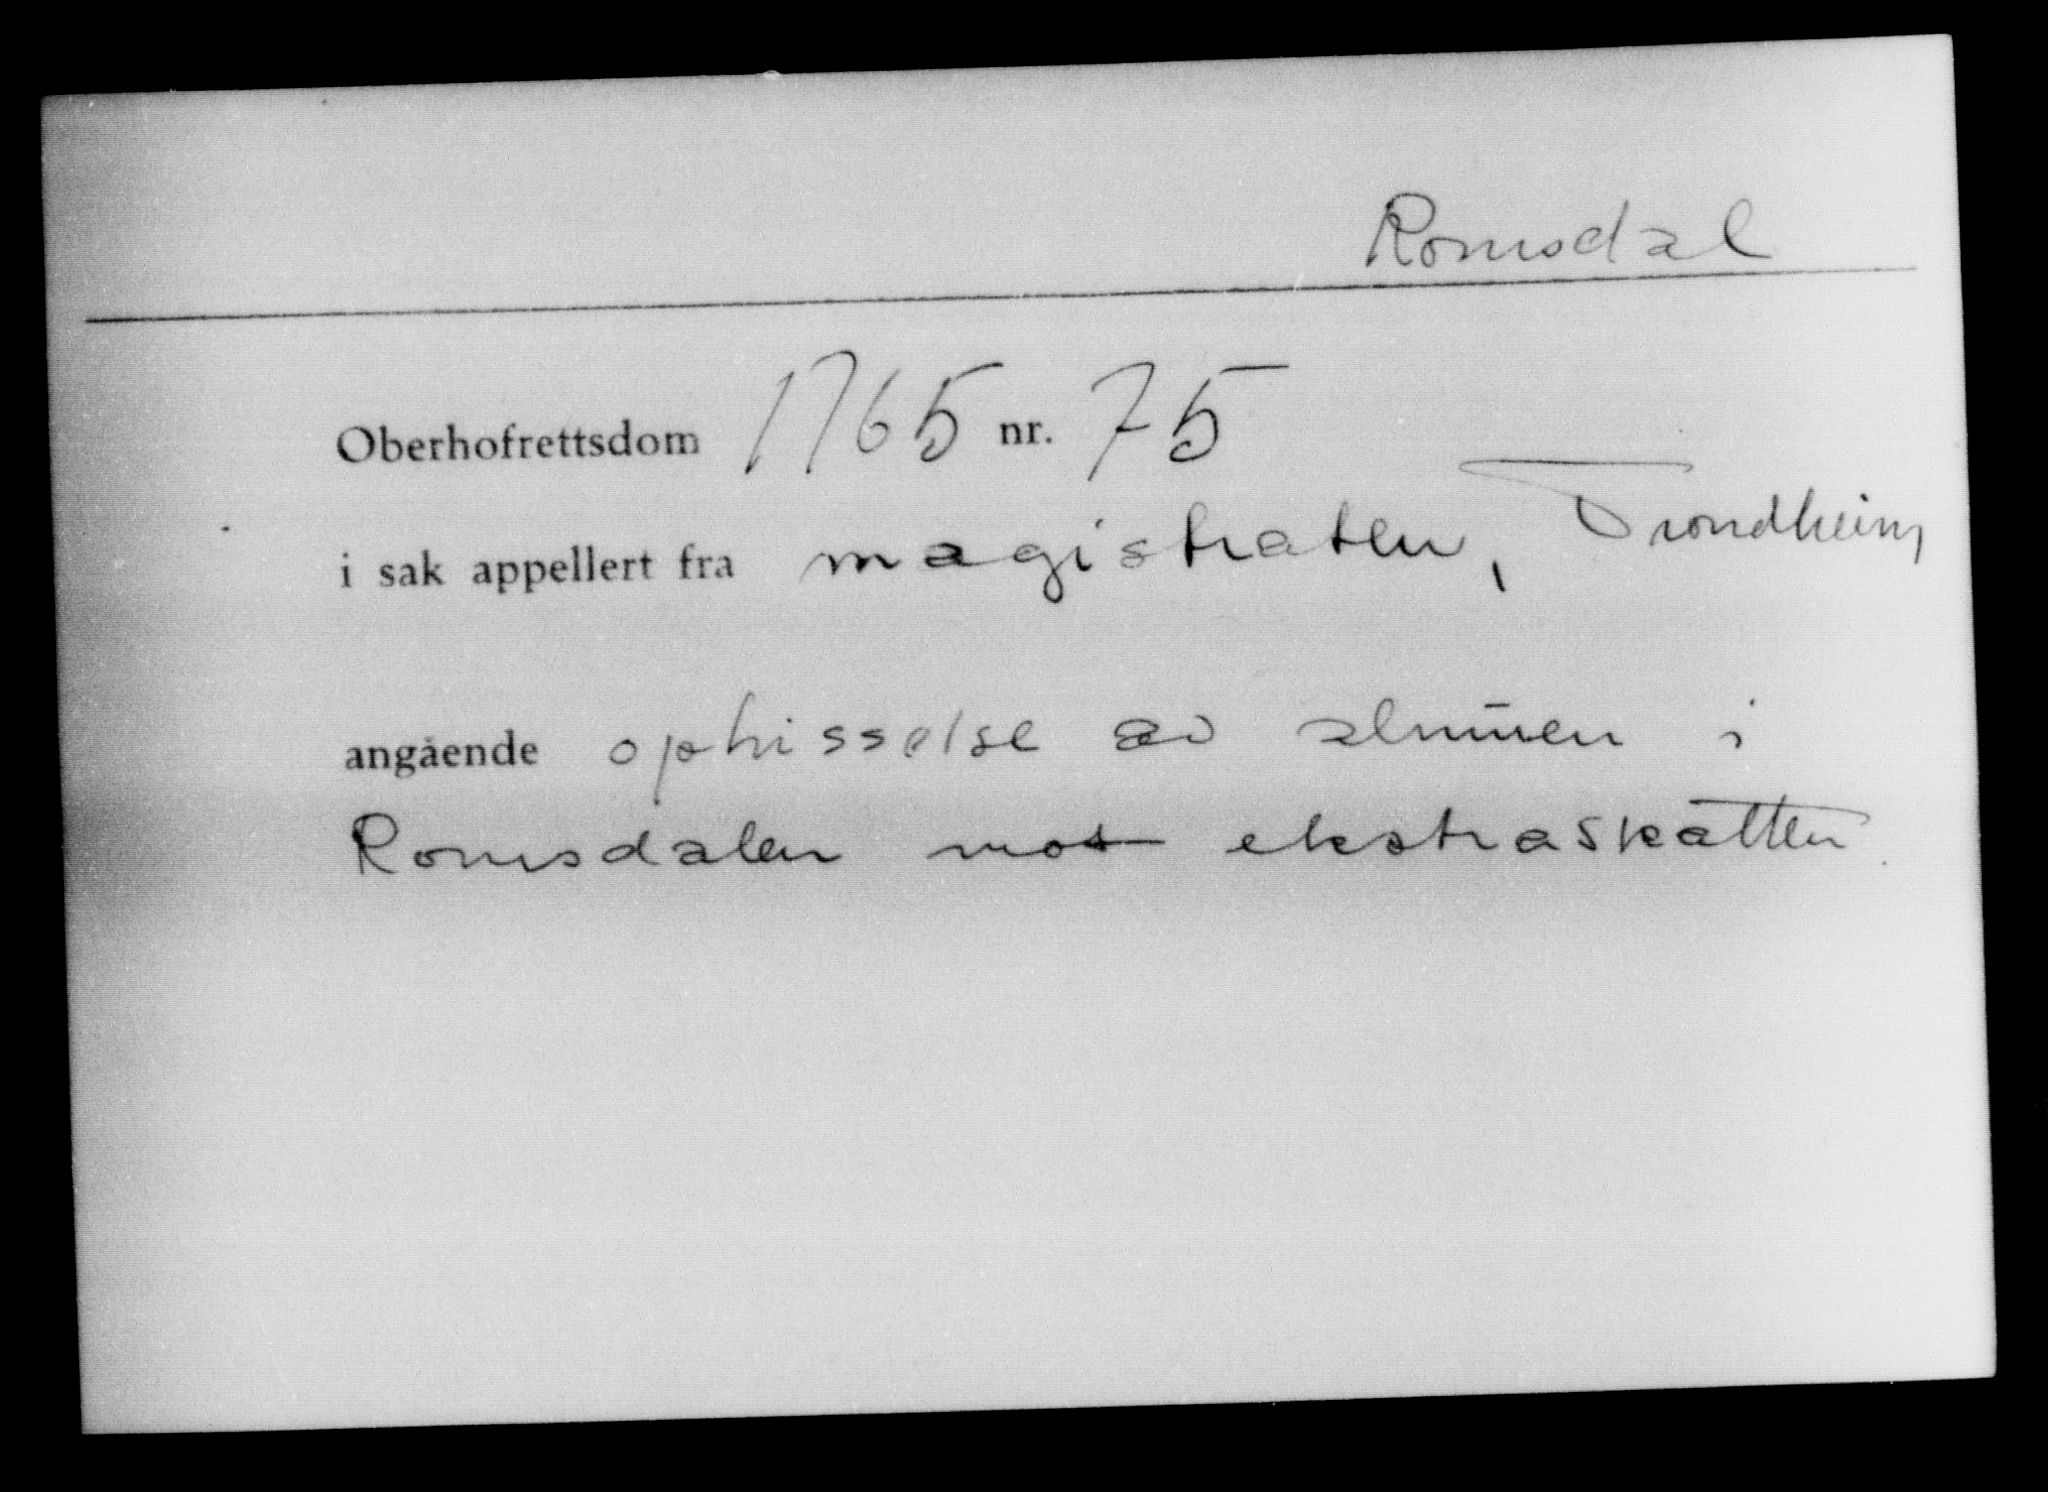 Romsdal
Oberhofrettsdom 1765 nr. 75
i sak appellert fra magistraten, Trondheim
angående ophisselse av almuen i
Romsdalen mot ekstraskatten